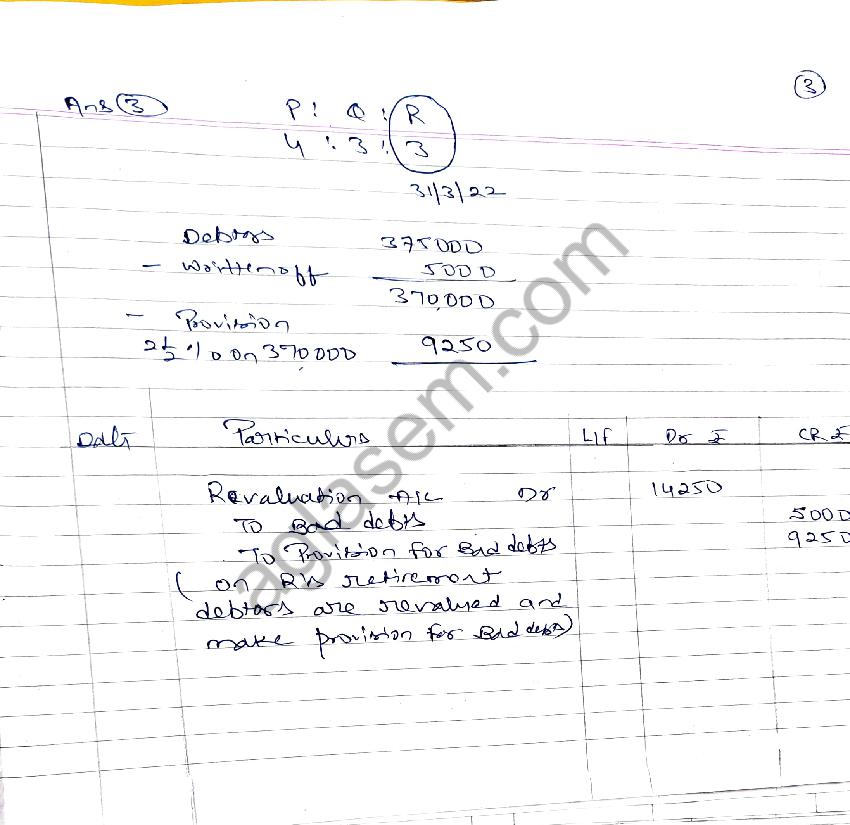 3
Ans 3
P : Q : R
4 : 3 : 3
31/3/22
Debtors 375000
- Writtenoff 5000
370,000
- Provision
2½ % on 370,000 9250
Date Particulars L/f Dr ₹ CR ₹
Revaluation A/c Dr 14250
To Bad debts 5000
To Provision for Bad debts 9250
( on R's retirement
debtors are revalued and
make provision for Bad debts)
aglasem.com